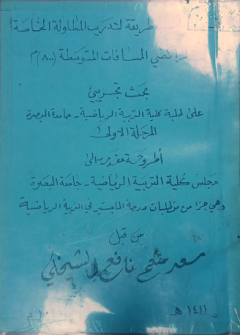 طريقة لتدريب المطاولة الخاصة
لراكضي المسافات المتوسطة (٨٠٠)م
بحث تجريبي
على طلبة كلية التربية الرياضية - جامعة البصرة
المرحلة الاولى
أطروحة مقدمة الى
مجلس كلية التربية الرياضية - جامعة البصرة
وهي جزء من متطلبات درجة الماجستير في التربية الرياضية
من قبل
سعد منعم نافع الشيخلي
١٤١١ هـ